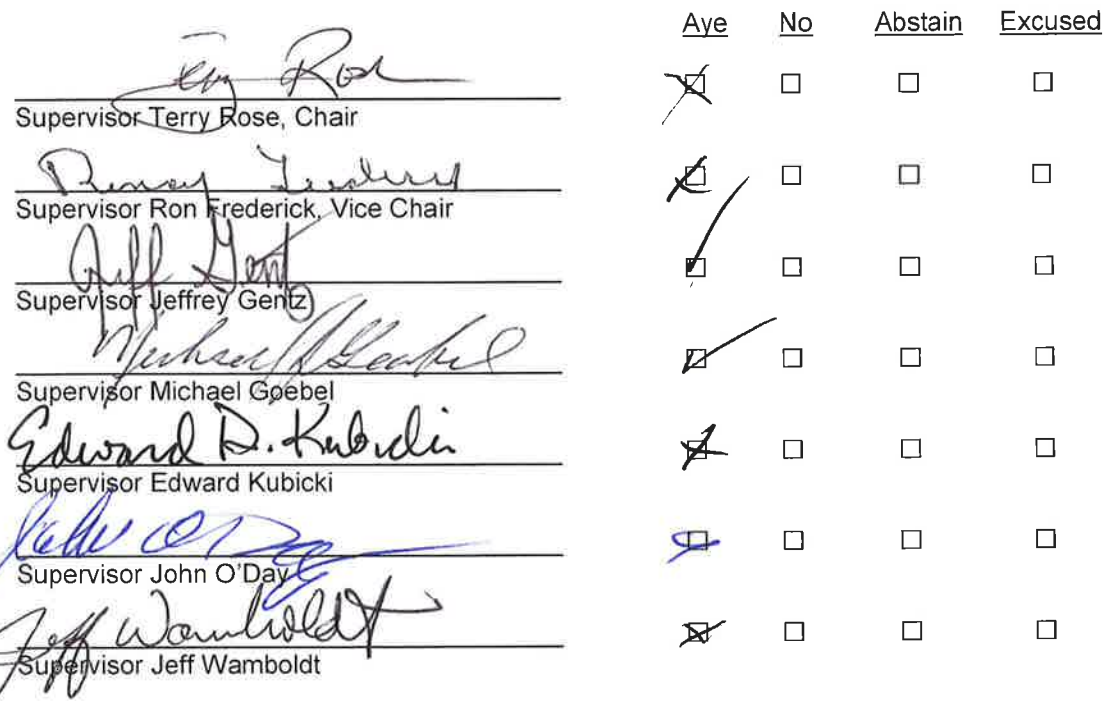 Aye No Abstain Excused
Terry Rose
Supervisor Terry Rose, Chair
Supervisor Ron Frederick, Vice Chair
Jeff Gentz
Supervisor Jeffrey Gentz
Michael J Goebel
Supervisor Michael Goebel
Edward D. Kubicki
Supervisor Edward Kubicki
John O'Day
Supervisor John O'Day
Jeff Wamboldt
Supervisor Jeff Wamboldt